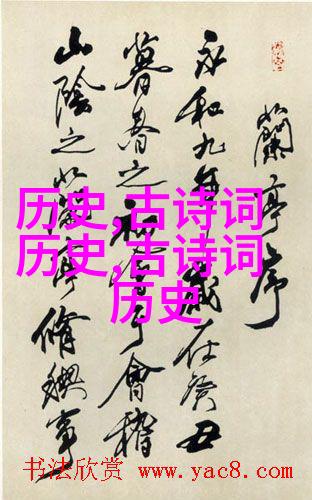 蘭亭序
永和九年歲在癸丑
暮春之初會于會稽
山陰之蘭亭脩禊事
历史,古诗词
历史,古诗词
历史
书法欣赏 www.yac8.com